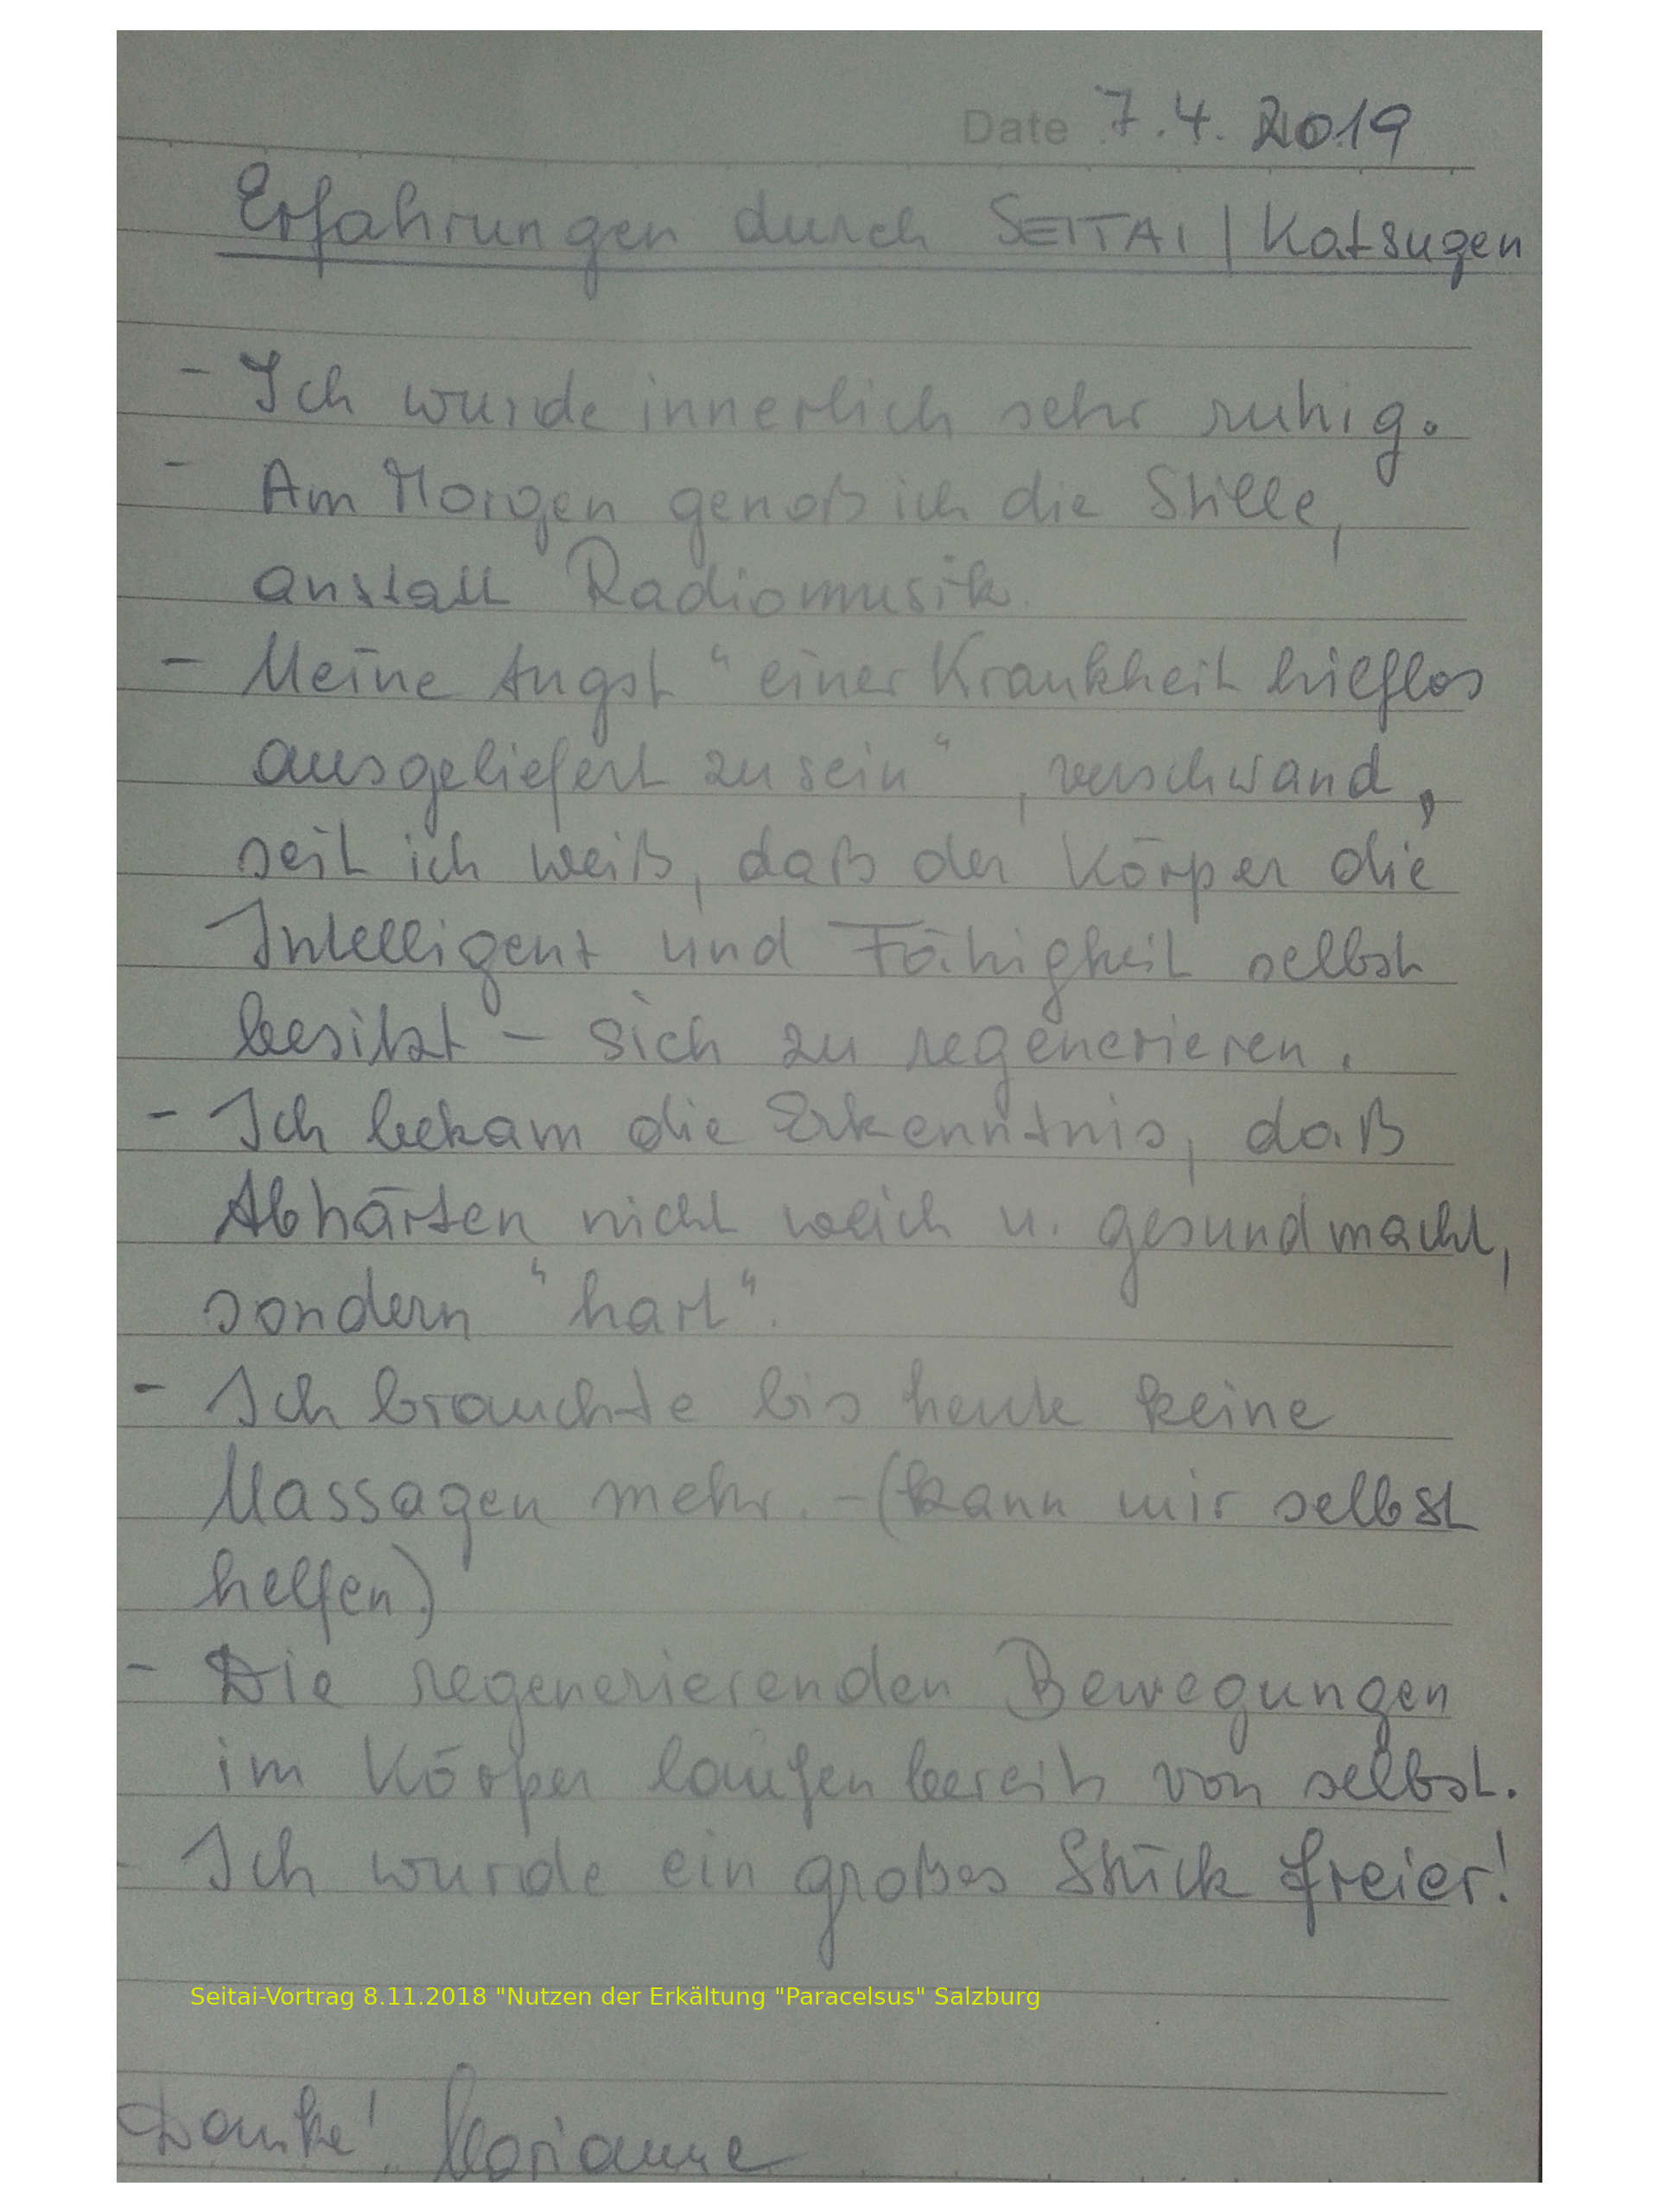 Date 7.4. 2019
Erfahrungen durch SEITAI | Katsugen
- Ich wurde innerlich sehr ruhig.
- Am Morgen genoß ich die Stille,
anstatt Radiomusik.
- Meine Angst "einer Krankheit hilflos
ausgeliefert zu sein", verschwand,
seit ich weiß, daß der Körper die
Intelligenz und Fähigkeit selbst
besitzt - sich zu regenerieren.
- Ich bekam die Erkenntnis, daß
Abhärten nicht weich u. gesund macht,
sondern "hart".
- Ich brauchte bis heute keine
Massagen mehr. - (kann mir selbst
helfen)
- Die regenerierenden Bewegungen
im Körper laufen bereits von selbst.
- Ich wurde ein großes Stück freier!
Seitai-Vortrag 8.11.2018 "Nutzen der Erkältung "Paracelsus" Salzburg
Danke! Marianne